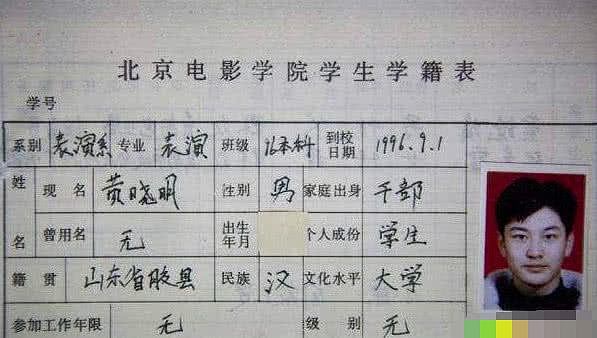 北京电影学院学生学籍表
学号
系别 表演系 专业 表演 班级 96本科 到校日期 1996.9.1
姓名 现名 黄晓明 性别 男 家庭出身 干部
曾用名 无 出生年月 个人成份 学生
籍贯 山东省 民族 汉 文化水平 大学
参加工作年限 无 级别 无